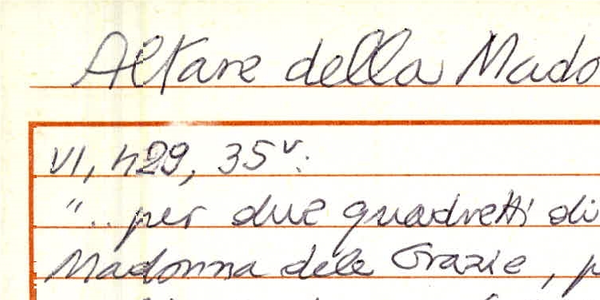 Altare della Mado
VI, 429, 35v:
"..per due quadretti di
Madonna delle Grazie, p